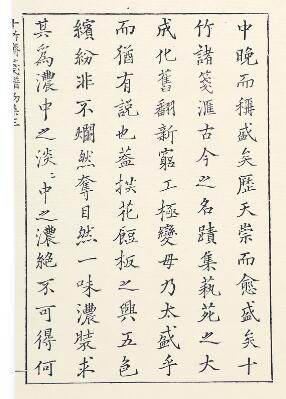 中晚而稱盛矣歷天崇而愈盛矣十
竹諸箋滙古今之名蹟集藝苑之大
成化舊翻新窮工極變毋乃太盛乎
而猶有説也蓋拱花餖板之興五色
繽紛非不爛然奪目然一味濃裝求
其為濃中之淡淡中之濃絕不可得何
十竹齋箋譜初集三